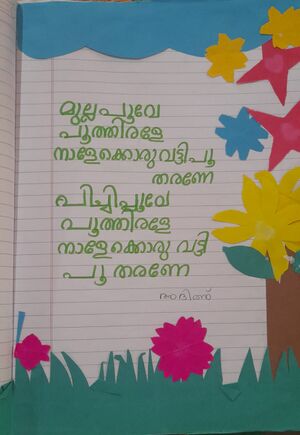 മുല്ലപ്പൂവേ
പൂത്തിരളേ
നാളേക്കൊരു വട്ടിപൂ
തരണേ
പിച്ചിപ്പൂവേ
പൂത്തിരളേ
നാളേക്കൊരു വട്ടി
പൂ തരണേ